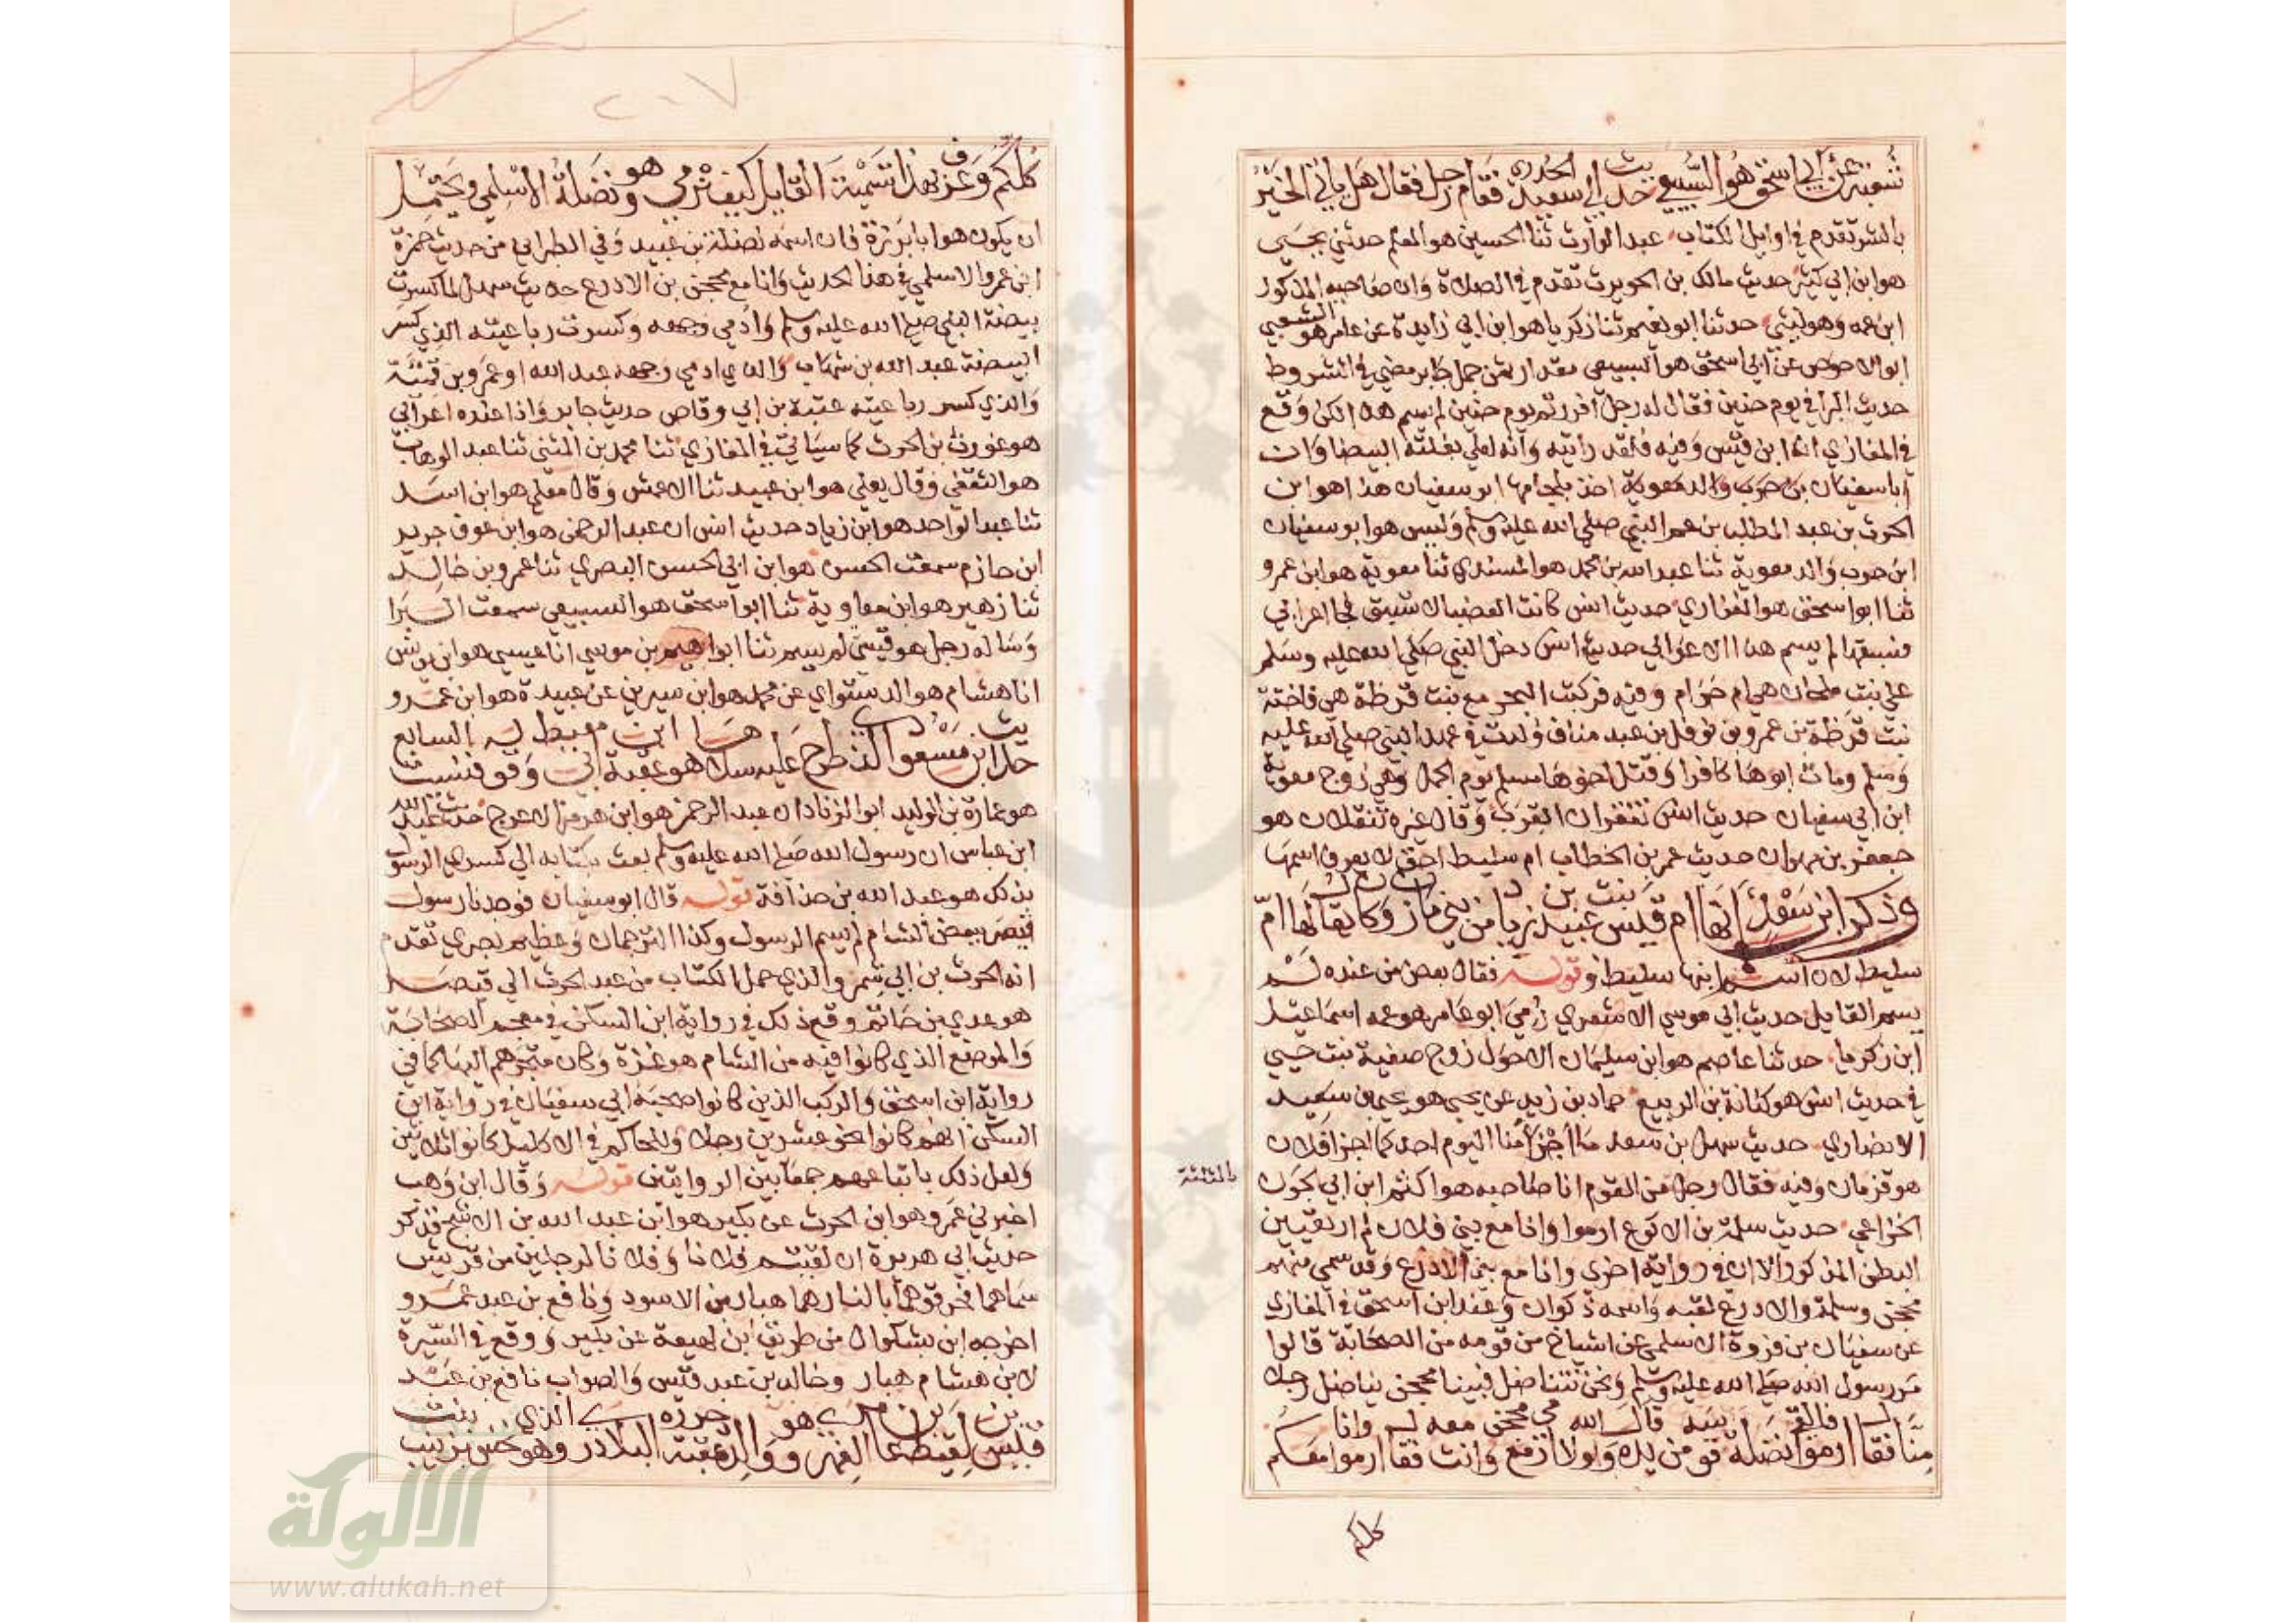 شعبة عن أبي اسحق هو السبيعي حديث أبي سعيد الخدري فقام رجل فقال هل ياتي الخير
بالشر تقدم في اوايل الكتاب عبد الوارث ثنا الحسين هو المعلم حدثني يحيى
هو ابن ابي كثير حديث مالك بن الحويرث تقدم في الصلاة وان صاحبه المذكور
ابن عمه وهو ليثي حدثنا ابو نعيم ثنا زكريا هو ابن ابي زايدة عن عامر هو الشعبي
ابو الاحوص عن ابي اسحق هو السبيعي مقدار ثمن جمل جابر مضى في الشروط
حديث البرا في يوم حنين فقال له رجل افررتم يوم حنين لم يسم هذا لكن وقع
في المغازي انه ابن قيس وفيه فلقد رايته وانه لعلي بغلته البيضا وان
ابا سفيان بن حرب والد معوية اخذ بلجامها ابو سفيان هذا هو ابن
الحرث بن عبد المطلب بن عم النبي صلى الله عليه وسلم وليس هو ابو سفيان
ابن حرب والد معوية ثنا عبد الله بن محمد هو المسندي ثنا معوية هو ابن عمرو
ثنا ابو اسحق هو الفزاري حديث انس كانت العضبا لا تسبق فجا اعرابي
فسبقها لم يسم هذا الاعرابي حديث انس دخل النبي صلى الله عليه وسلم
على بنت ملحان هي ام حرام وفيه فركبت البحر مع بنت قرظة هي فاختة
بنت قرظة بن عمرو بن نوفل بن عبد مناف ولدت في عهد النبي صلى الله عليه
وسلم ومات ابوها كافرا وقتل اخوها مسلم يوم الجمل وهي زوج معوية
ابن ابي سفيان حديث انس تنقزان القرب وقال غيره تنقلان هو
جعفر بن مهران حديث عمر بن الخطاب ام سليط احق لا يعرف اسمها
وذكر ابن سعد انها ام قيس بنت عبيد بن زياد من بني مازن وكان يقال لها ام
سليط لان اسم ابنها سليط وقوله فقال بعض من عنده لم
يسم القايل حديث ابي موسي الاشعري رمي ابو عامر هو عمه اسماعيل
ابن زكريا حدثنا عاصم هو ابن سليمان الاحول زوج صفية بنت حيي
في حديث انس هو كنانة بن الربيع حماد بن زيد عن يحيى هو يحيى بن سعيد
الانصاري حديث سهل بن سعد ما اجزأ منا اليوم احد كما اجزا فلان
هو قزمان وفيه فقال رجل من القوم انا صاحبه هو اكثم ابن ابي الجون
بالمثلثة
الخزاعي حديث سلمة بن الاكوع ارموا وانا مع بني فلان لم ار تعيين
البطن المذكور الا ان في رواية اخرى وانا مع بني الادرع وقد سمي منهم
محجن وسلمة والادرع لقبه واسمه ذكوان وعند ابن اسحق في المغازي
عن سفيان بن فروة الاسلمي عن اشياخ من قومه من الصحابة قالوا
مر رسول الله صلى الله عليه وسلم ونحن نتناضل فبينا محجن يناضل رجلا
منا فقال ارموا نضلة فالقى قوسه من يده وقال والله لا ارمي محجن وانت معه فقال ارموا وانا معكم
كلكم
٢٠٧
كلكم وعرف بهذا تسمية القايل كيف نرمي وهو نضلة الاسلمي ويحتمل
ان يكون هو ابا برزة فان اسمه نضلة بن عبيد وفي الطبراني من حديث حمزة
ابن عمرو الاسلمي في هذا الحديث وانا مع محجن بن الادرع حديث سهل لما كسرت
بيضة النبي صلى الله عليه وسلم وادمي وجهه وكسرت رباعيته الذي كسر
البيضة عبد الله بن شهاب والذي ادمي وجهه عبد الله او عمرو بن قميئة
والذي كسر رباعيته عتبة بن ابي وقاص حديث جابر واذا عنده اعرابي
هو غورث بن الحرث كما سياتي في المغازي ثنا محمد بن المثنى ثنا عبد الوهاب
هو الثقفي وقال يعلى هو ابن عبيد ثنا الاعمش وقال معلى هو ابن اسد
ثنا عبد الواحد هو ابن زياد حديث انس ان عبد الرحمن هو ابن عوف جرير
ابن حازم سمعت الحسن هو ابن ابي الحسن البصري ثنا عمرو بن خالد
ثنا زهير هو ابن معاوية ثنا ابو اسحق هو السبيعي سمعت البرا
وساله رجل هو قيسي لم يسم ثنا ابراهيم بن موسى انا عيسى هو ابن يونس
انا هشام هو الدستواي عن محمد هو ابن سيرين عن عبيدة هو ابن عمرو
حديث ابن مسعود الذي طرح عليه سلا هو عقبة ابن ابي معيط وقوله فنسيت السابع
هو عمارة بن الوليد ابو الزناد ان عبد الرحمن هو ابن هرمز الاعرج حديث عبد الله
ابن عباس ان رسول الله صلى الله عليه وسلم بعث بكتابه الي كسرى الرسول
بذلك هو عبد الله بن حذافة قوله قال ابو سفيان فوجدنا رسول
قيصر ببعض الشام لم يسم الرسول وكذا الترجمان وعظيم بصرى تقدم
انه الحرث بن ابي شمر والذي حمل الكتاب من عبد الحرث الي قيصر
هو عدي بن حاتم وقع ذلك في رواية ابن السكن في معجم الصحابة
والموضع الذي كانوا فيه من الشام هو غزة وكان متجرهم اليها كما في
رواية ابن اسحق والركب الذين كانوا صحبة ابي سفيان في رواية ابن
السكن انهم كانوا نحو عشرين رجلا وللحاكم في الاكليل كانوا ثلاثين
ولعل ذلك باتباعهم جمعا بين الروايتين قوله وقال ابن وهب
اخبرني عمرو هو ابن الحرث عن بكير هو ابن عبد الله بن الاشج فذكر
حديث ابي هريرة ان لقيتم فلانا وفلانا لرجلين من قريش
سماهما فحرقوهما بالنار هما هبار بن الاسود ونافع بن عبد عمرو
اخرجه ابن بشكوال من طريق ابن لهيعة عن بكير ووقع في السيرة
لابن هشام هبار وخالد بن عبد قيس والصواب نافع بن عبد
قيس بن لقيط بن عامر الفهري وهو والد عقبة
الالوكة
www.alukah.net